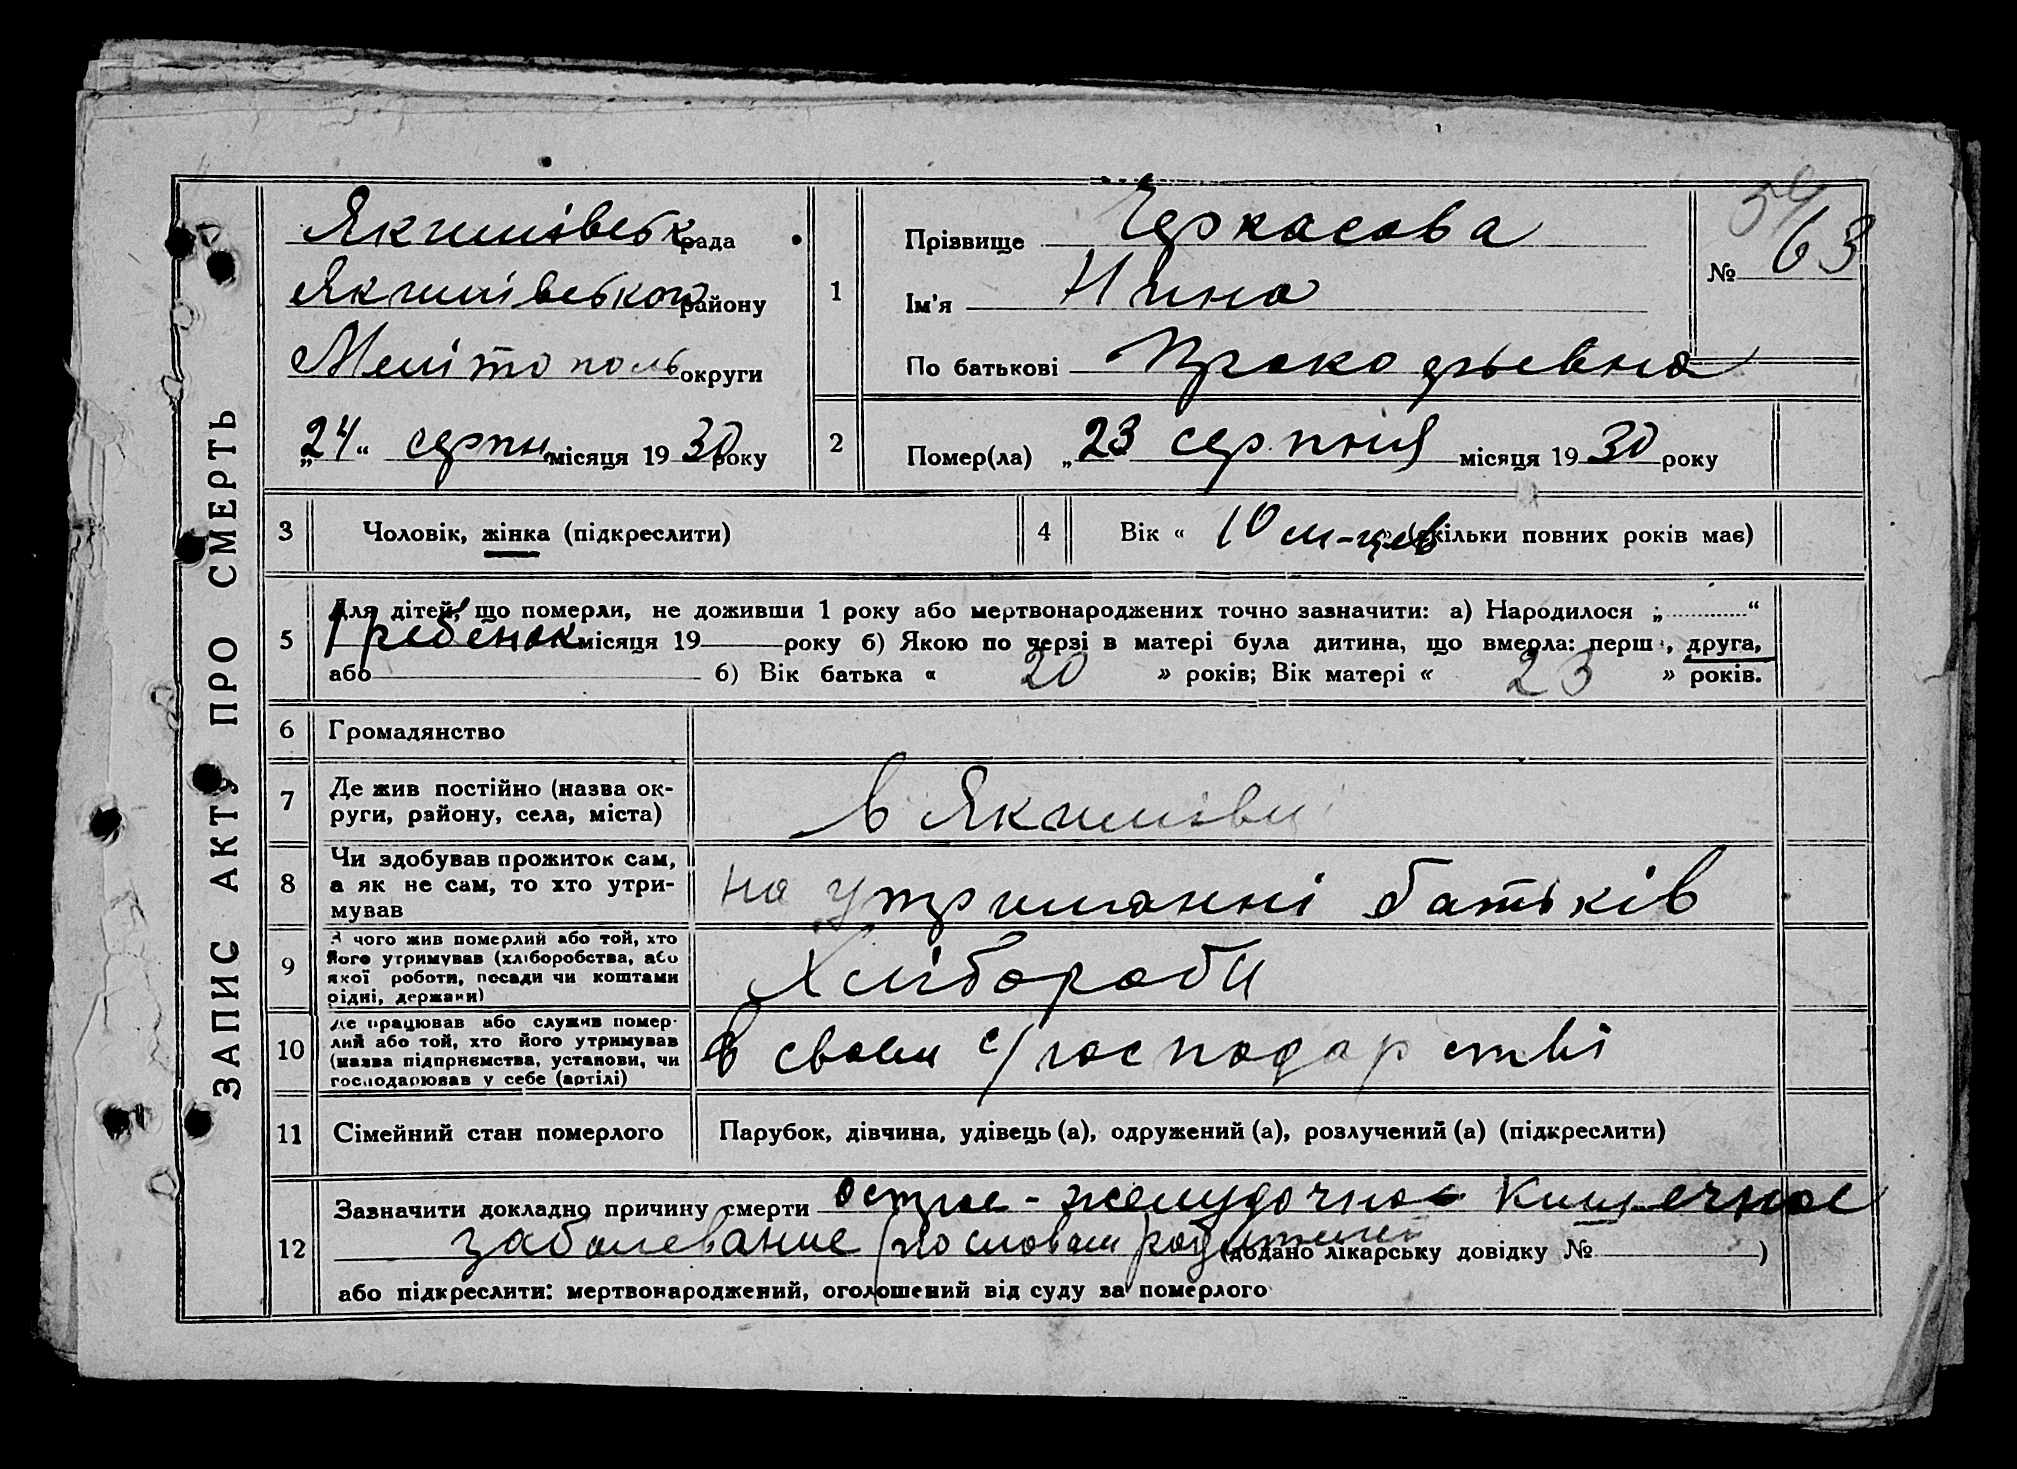 ЗАПИС АКТУ ПРО СМЕРТЬ
Якимівськ рада
Якимівського району
Мелітополь округи
„24“ серпн місяця 1930 року
1
Прізвище Черкасова
Ім'я Нина
По батькові
№ 63
54
2
Помер(ла) „23 серпня місяця 1930 року
3 Чоловік, жінка (підкреслити)
4 Вік « 10 м-цев скільки повних років має)
5 Для дітей, що померли, не доживши 1 року або мертвонароджених точно зазначити: а) Народилося „ “
1 ребенок місяця 19 року б) Якою по черзі в матері була дитина, що вмерла: перш , друга,
або б) Вік батька « 20 » років; Вік матері « 23 » років.
6 Громадянство
7 Де жив постійно (назва ок-
руги, району, села, міста)
в Якимівці
8 Чи здобував прожиток сам,
а як не сам, то хто утри-
мував
на утриманні батьків
9 З чого жив померлий або той, хто
його утримував (хліборобства, або
якої роботи, посади чи коштами
рідні, держави)
Хлібороби
10 Де працював або служив помер-
лий або той, хто його утримував
(назва підприємства, установи, чи
господарював у себе (артілі)
В своем с/господарстві
11 Сімейний стан померлого Парубок, дівчина, удівець (а), одружений (а), розлучений (а) (підкреслити)
12 Зазначити докладно причину смерти острое - желудочное Кишечное
заболевание (по словам родителей (додано лікарську довідку № )
або підкреслити: мертвонароджений, оголошений від суду за померлого